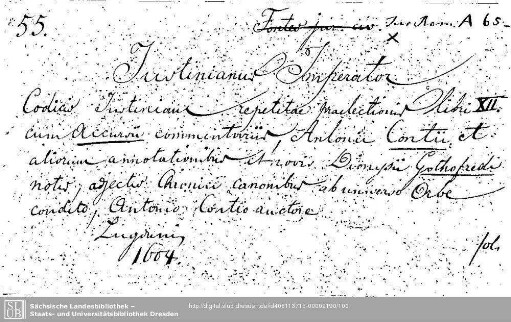 55. Fontes jur. civ. Jus Rom. A 65
x
Justinianus Imperator
Codicis Justiniani repetitae praelectionis libri XII.
cum Accursii commentariis, Antonii Contii et
aliorum annotationibus et novis Dionysii Gothofredi
notis, adjectis Chronicis canonibus ab universo Orbe
condito, Antonio Contio auctore
Lugduni
1604. fol.
Sächsische Landesbibliothek –
Staats- und Universitätsbibliothek Dresden